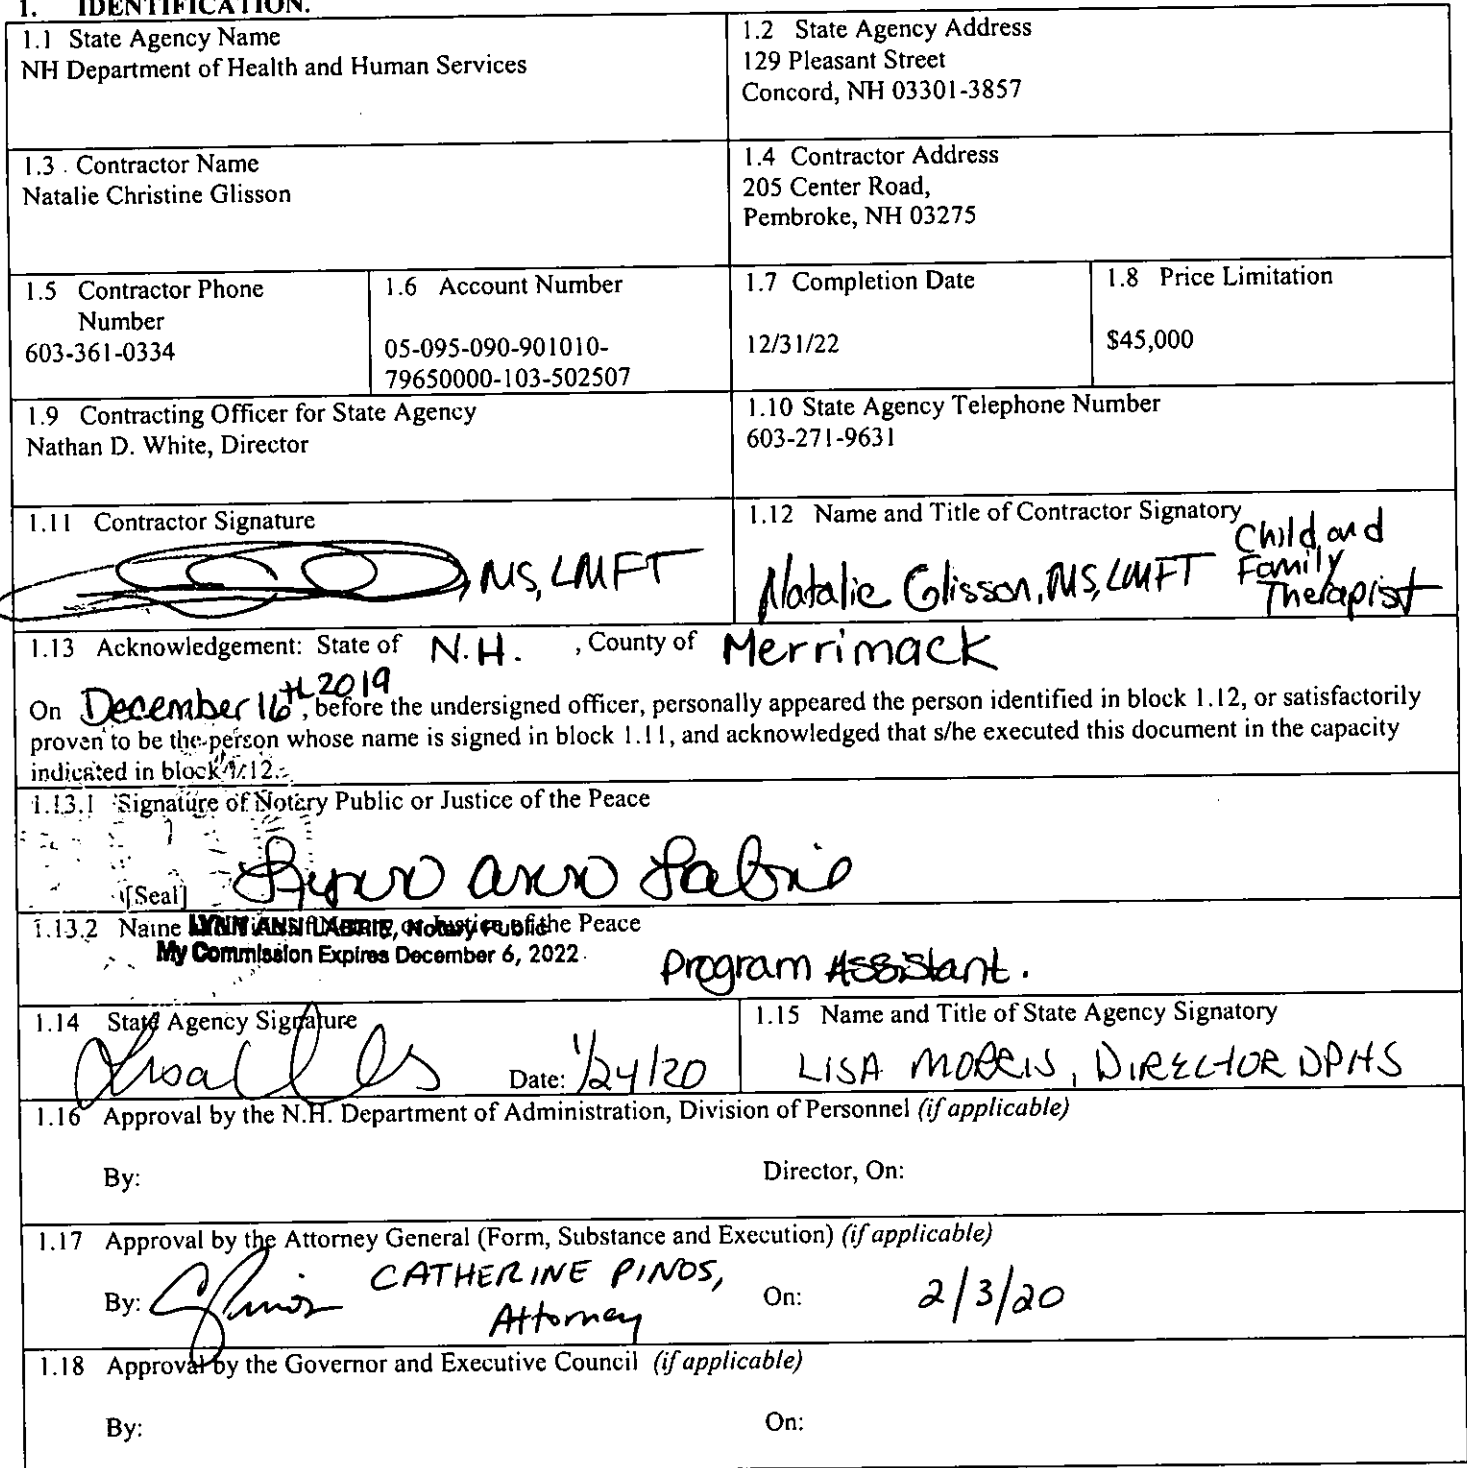 1. IDENTIFICATION.
1.1 State Agency Name
NH Department of Health and Human Services
1.2 State Agency Address
129 Pleasant Street
Concord, NH 03301-3857
1.3 Contractor Name
Natalie Christine Glisson
1.4 Contractor Address
205 Center Road,
Pembroke, NH 03275
1.5 Contractor Phone
Number
603-361-0334
1.6 Account Number
05-095-090-901010-
79650000-103-502507
1.7 Completion Date
12/31/22
1.8 Price Limitation
$45,000
1.9 Contracting Officer for State Agency
Nathan D. White, Director
1.10 State Agency Telephone Number
603-271-9631
1.11 Contractor Signature
, MS, LMFT
1.12 Name and Title of Contractor Signatory
Natalie Glisson, MS, LMFT Child and
Family
Therapist
1.13 Acknowledgement: State of N.H. , County of Merrimack
On December 16th 2019, before the undersigned officer, personally appeared the person identified in block 1.12, or satisfactorily
proven to be the person whose name is signed in block 1.11, and acknowledged that s/he executed this document in the capacity
indicated in block 1.12.
1.13.1 Signature of Notary Public or Justice of the Peace
[Seal] Lynn Ann Labrie
1.13.2 Name LYNN ANN LABRIE, Notary Public of the Peace
My Commission Expires December 6, 2022
Program Assistant.
1.14 State Agency Signature
Date: 1/24/20
1.15 Name and Title of State Agency Signatory
LISA MORRIS, DIRECTOR DPHS
1.16 Approval by the N.H. Department of Administration, Division of Personnel (if applicable)
By: Director, On:
1.17 Approval by the Attorney General (Form, Substance and Execution) (if applicable)
By: CATHERINE PINOS,
Attorney
On: 2/3/20
1.18 Approval by the Governor and Executive Council (if applicable)
By: On: